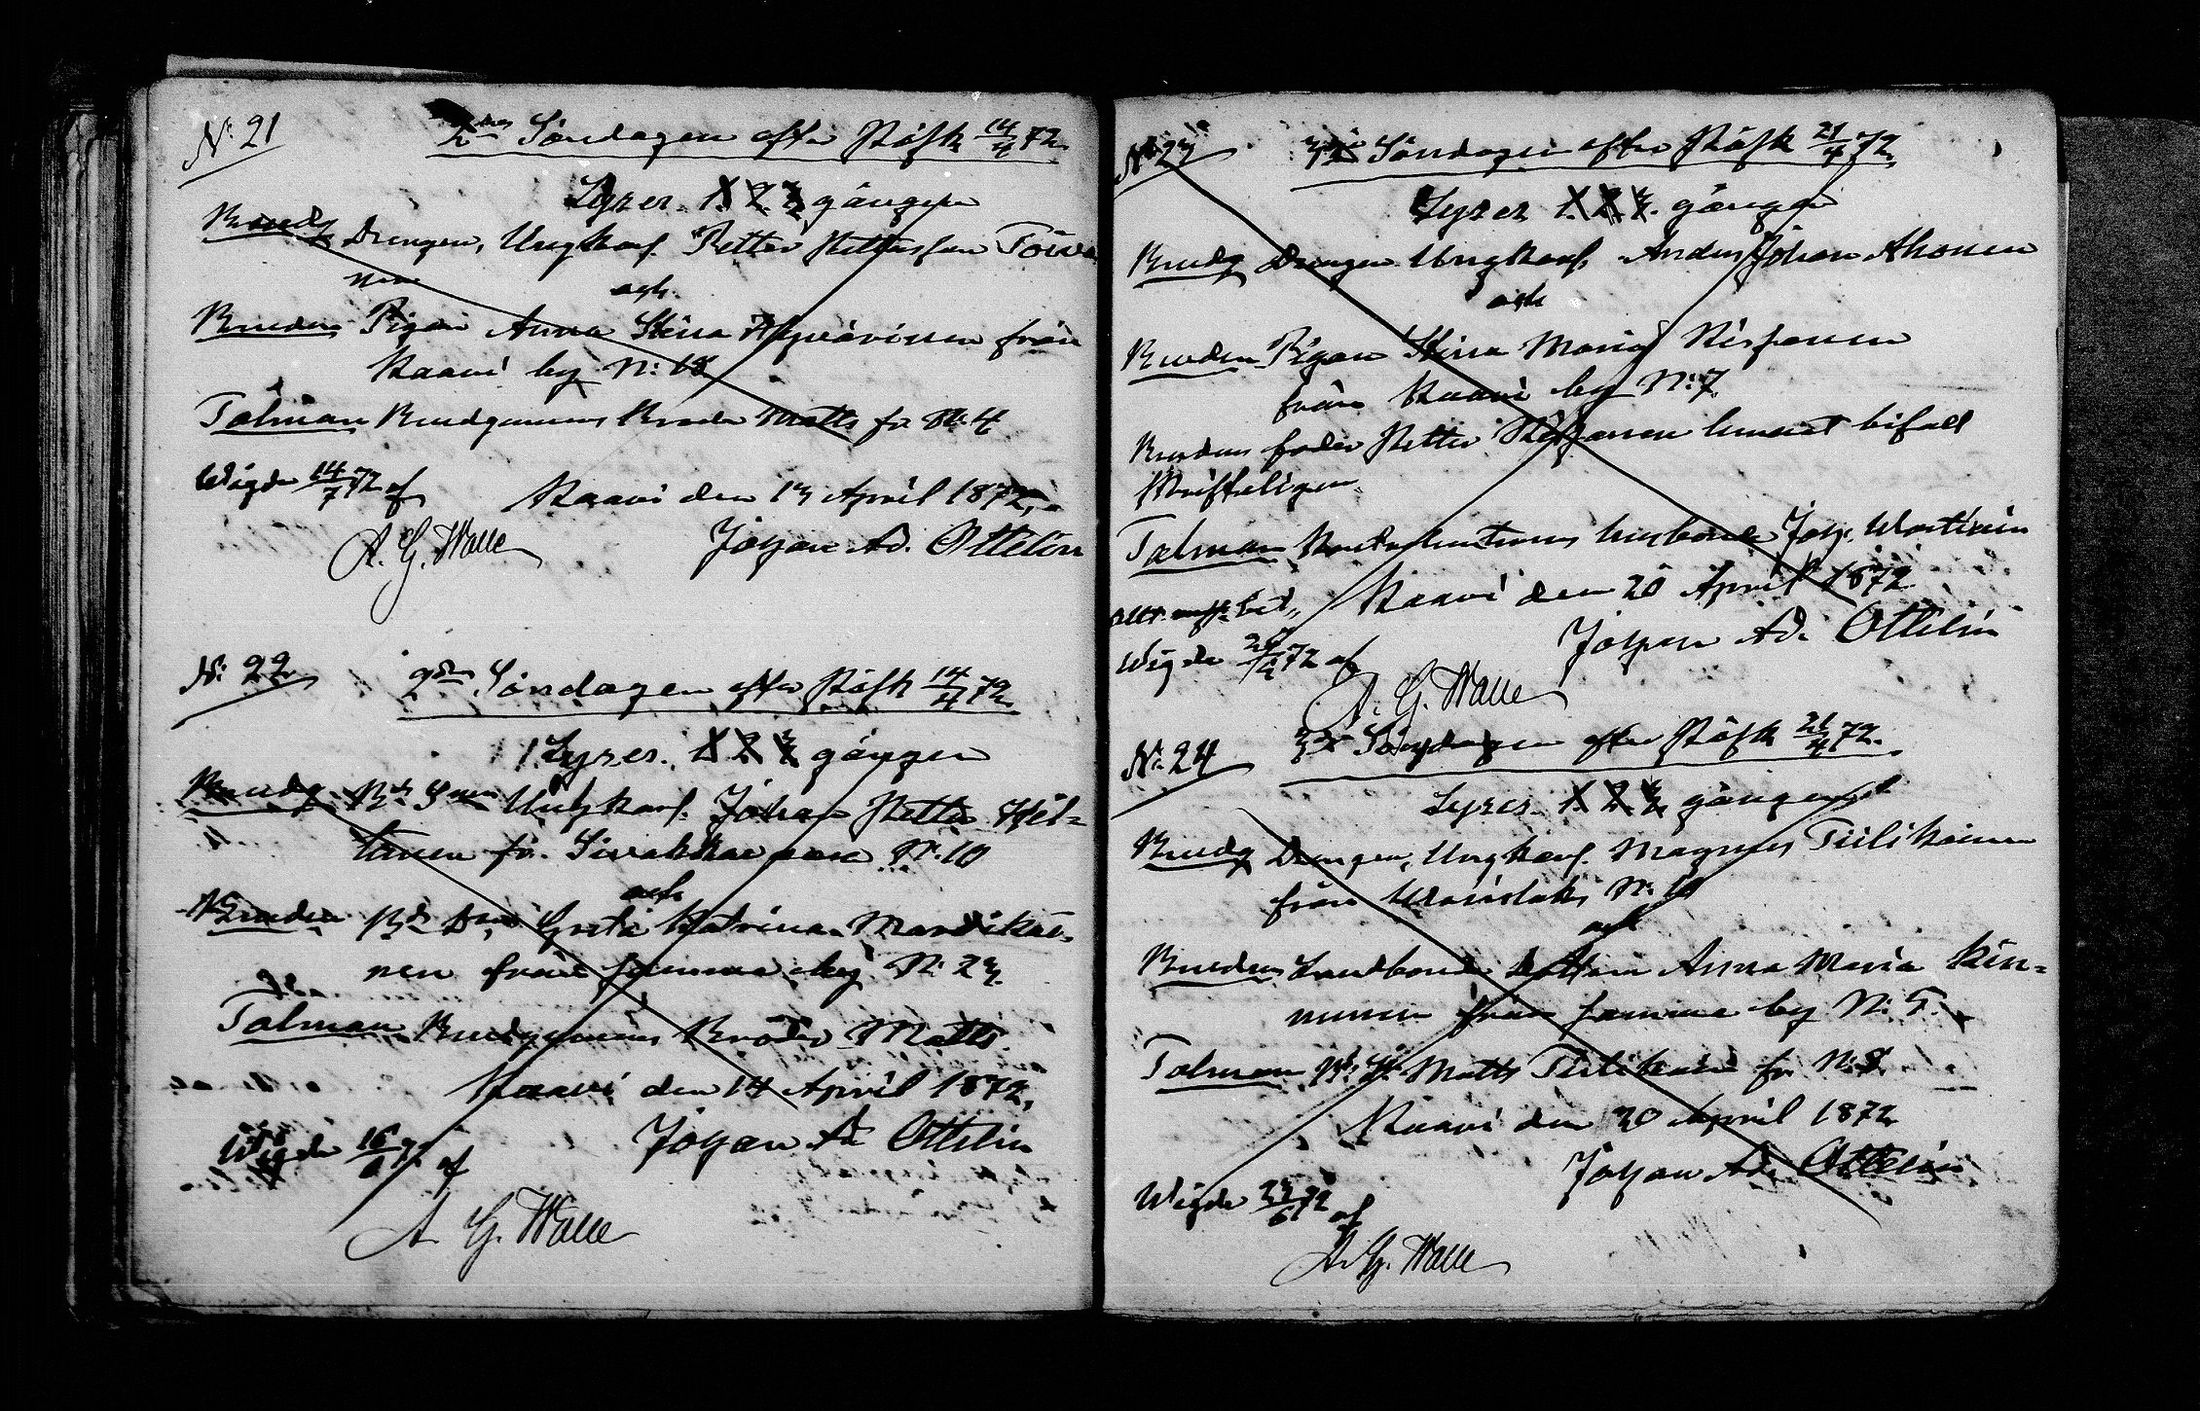 N: 21
2dra Söndagen efter Påsk 14/4 72
Lyses 1. 2. 3. gången
Brudg Drengen, Ungkarl. Petter Pettersson Toiva
nen
och
Bruden Pigan Anna Stina Hyvärinen från
Kaavi by N: 18
Talman Brudgummens Broder Matts fr. N: 4
Wigde 14/7 72 af
Kaavi den 13 April 1872.
A. G. Walle
Johan Ad. Ottelin
N: 22
2dra Söndagen efter Påsk 14/4 72
Lyses. 1 2 3 gången
Brudg Bd Son Ungkarl. Johan Petter Hil=
tunen fr. Sivakkavaara N: 10
och
Bruden Bd Dr Greta Katrina Mandikai=
nen från samma by N: 23
Talman Brudgummens Broder Matts
Kaavi den 14 April 1872,
Wigde 16/6 72 af
Johan Ad Ottelin
A G. Walle
N: 23
3dje Söndagen efter Påsk 21/4 72
Lyses 1. 2. 3. gången
Brudg Drengen Ungkarl. Anders Johan Ahonen
och
Bruden Pigan Stina Maria Rissanen
från Kaavi by N: 7
Brudens fader Petter Rissanen lemnat bifall
skrifteligen
Talman husbonde Joh. Wartiain
Kaavi den 20 April 1872
Johan Ad. Ottelin
Wigde 72 af
A. G. Walle
N: 24
3dje Söndagen efter Påsk 21/4 72.
Lyses. 1. 2. 3. gången
Brudg Drengen, Ungkarl. Magnus Tiilikainen
från Wäärislaks N: 10
och
Bruden Landbonde Dottern Anna Maria Kin=
nunen från samma by N: 5.
Talman Bd S. Matts Tiilikainen fr N: 8.
Kaavi den 20 April 1872
Johan Ad. Ottelin
Wigde 23/6 72 af
A. G. Walle